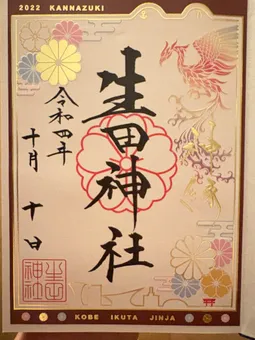 2022 KANNAZUKI
生田神社
令和四年
十月十日
KOBE IKUTA JINJA